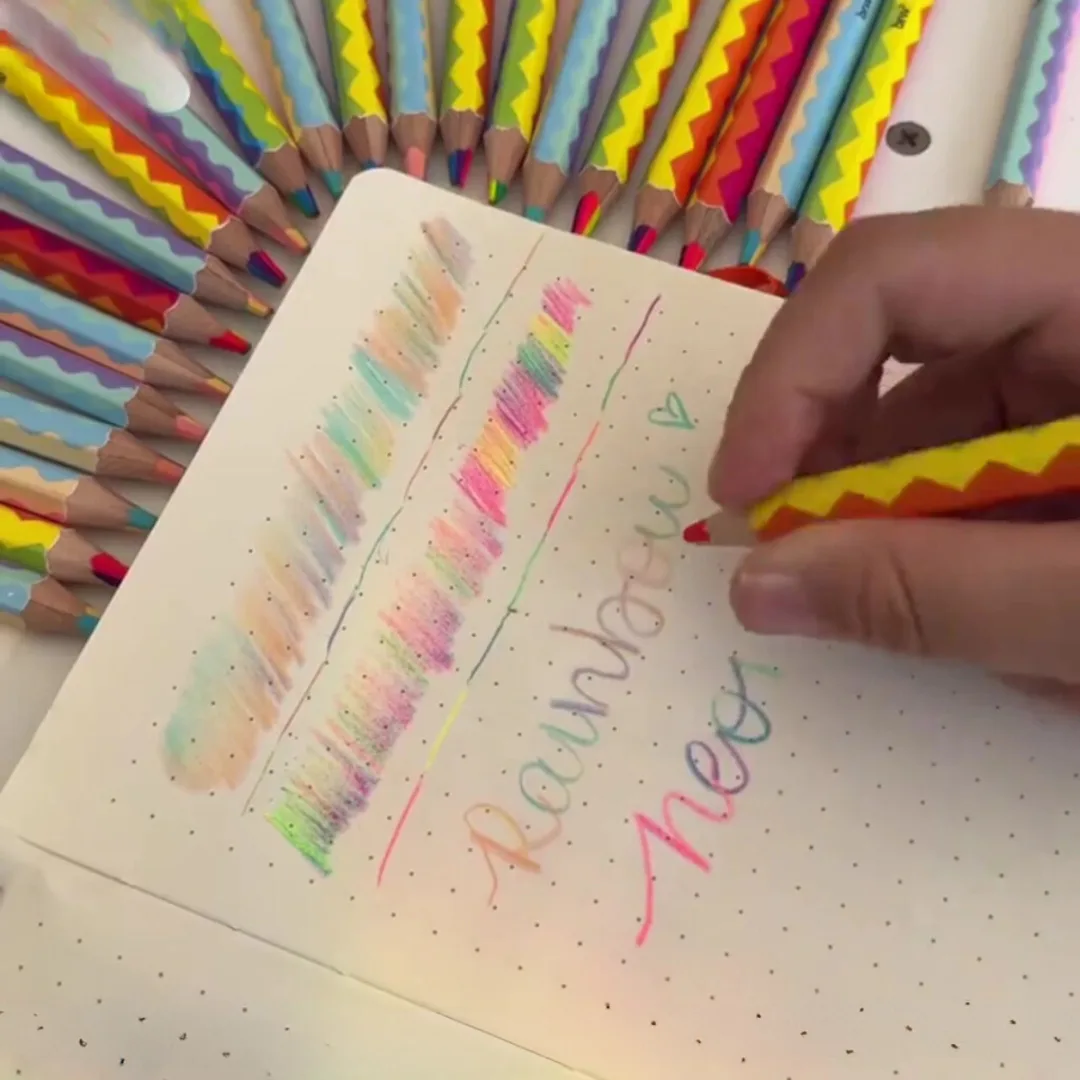 Rainbow ♡
neo